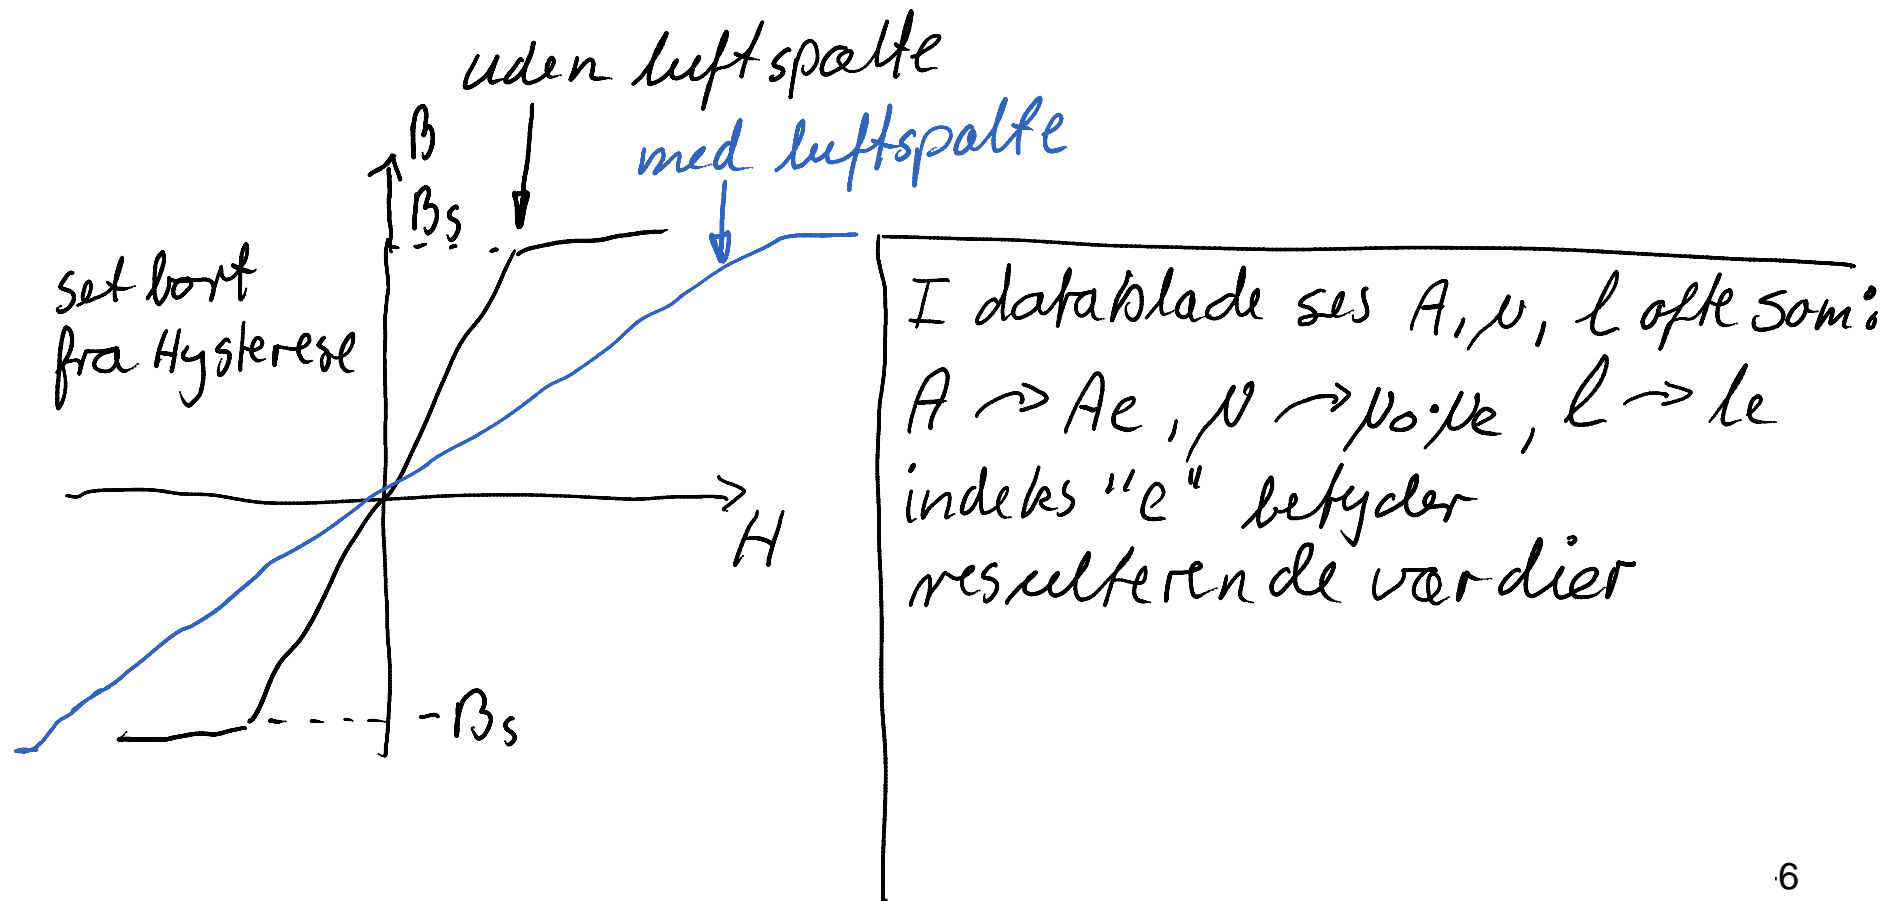 uden luftspalte
med luftspalte
B
Bs
set bort
fra Hysterese
H
-Bs
I datablade ses A, μ, l ofte som:
A → Ae, μ → μ0·μe, l → le
indeks "e" betyder
resulterende værdier
6